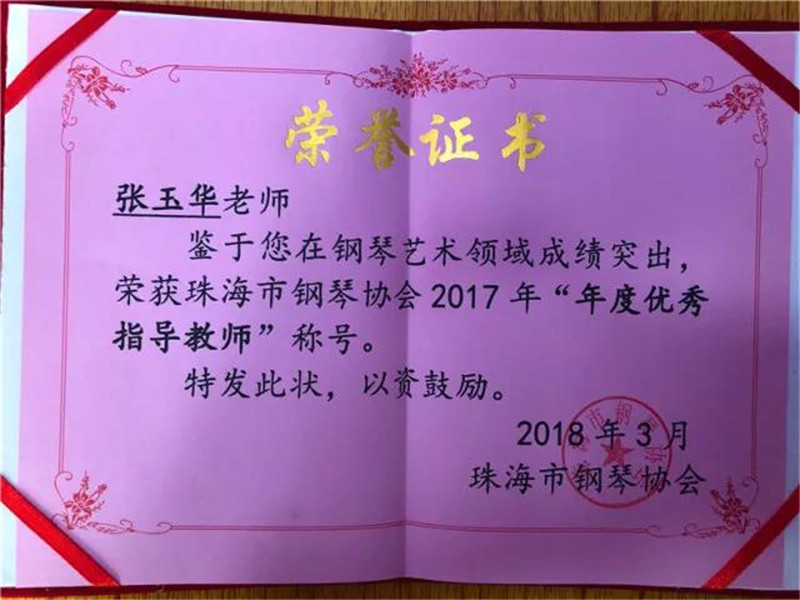 荣誉证书
张玉华老师
鉴于您在钢琴艺术领域成绩突出，
荣获珠海市钢琴协会2017年“年度优秀
指导教师”称号。
特发此状，以资鼓励。
2018年3月
珠海市钢琴协会